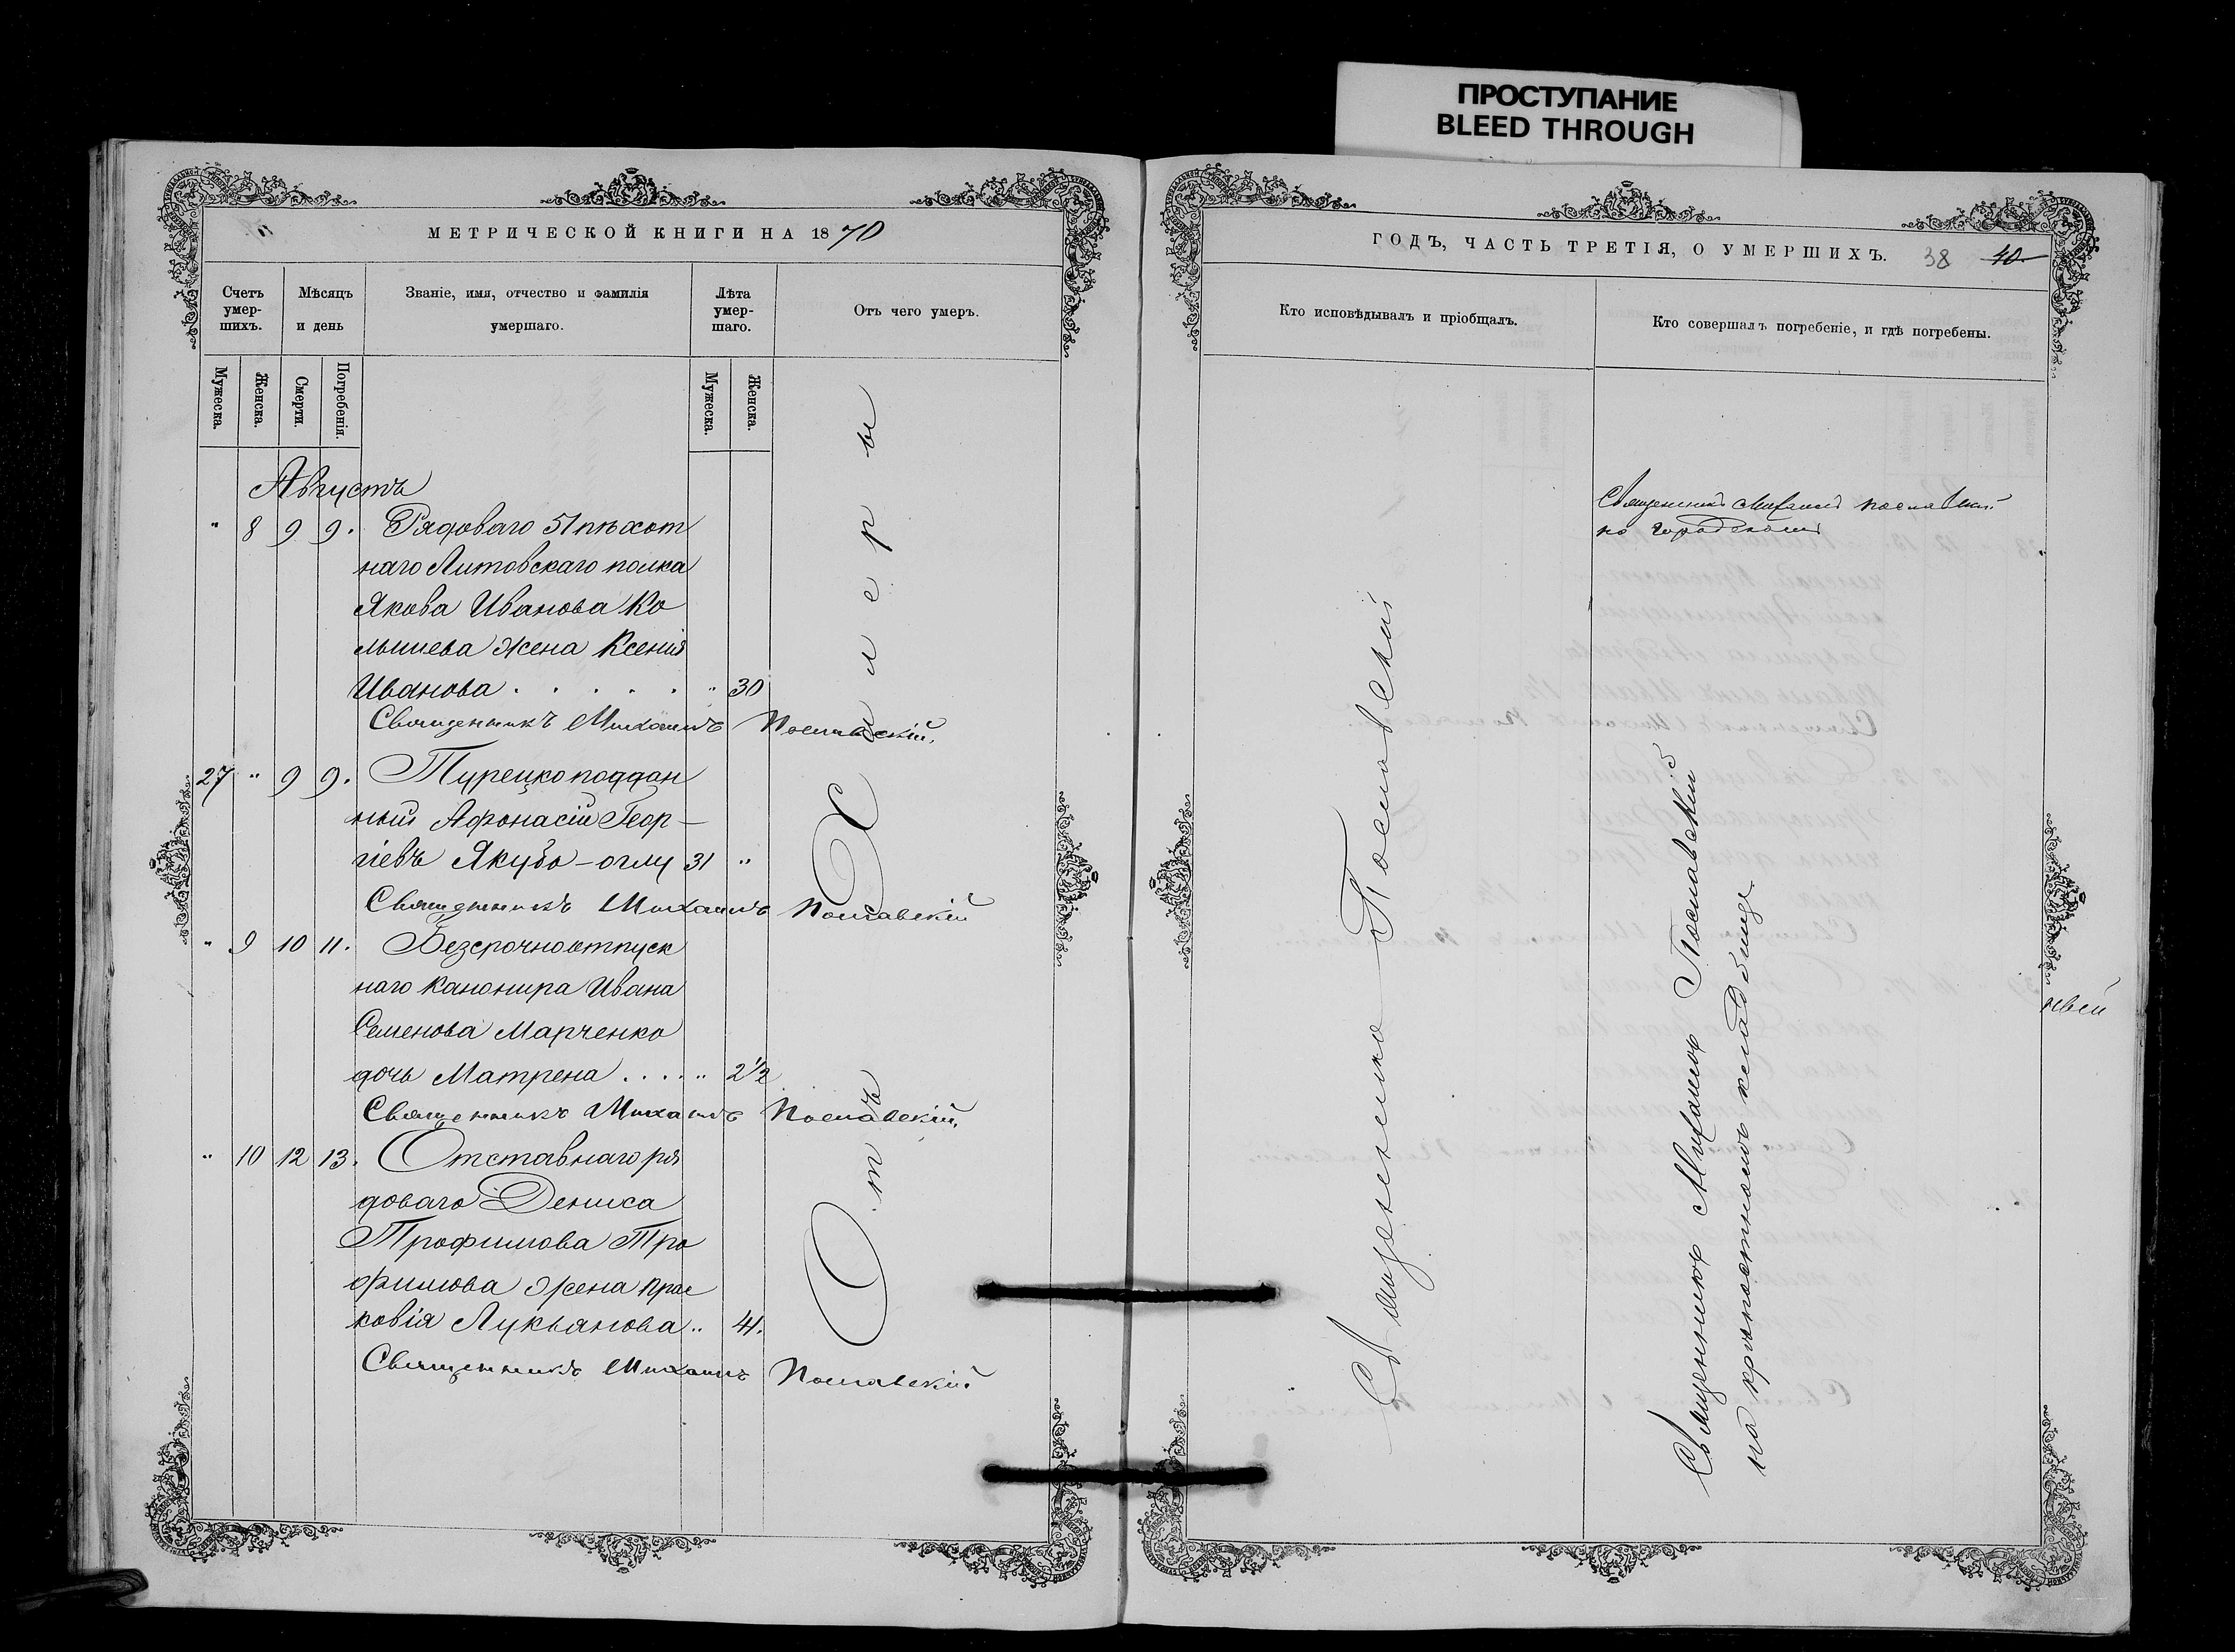 ПРОСТУПАНИЕ
BLEED THROUGH
МЕТРИЧЕСКОЙ КНИГИ НА 1870
Счетъ умер-шихъ.
Мѣсяцъ и день
Званіе, имя, отчество и фамилія умершаго.
Лѣта умер-шаго.
Отъ чего умеръ.
Мужеска.
Женска.
Смерти.
Погребенія.
Мужеска.
Женска.
Августъ
" 8 9 9. Рядоваго 51 пѣхот
наго Литовскаго полка
Якова Иванова Ко
мышева жена Ксенія
Иванова . . . . . " 30
Священникъ Михаилъ Пославскій.
27 " 9 9. Турецкоподдан
ный Афонасій Геор-
гіевъ Якубо-оглу 31 "
Священникъ Михаилъ Пославскій
" 9 10 11. Безсрочноотпуск
наго канонира Ивана
Семенова Марченко
дочь Матрена . . . . " 2½
Священникъ Михаилъ Пославскій.
" 10 12 13. Отставнаго ря
доваго Дениса
Трофимова Тро
фимова жена Прас
ковія Лукьянова .. 41.
Священникъ Михаилъ Пославскій
Отъ Холеры
ГОДЪ, ЧАСТЬ ТРЕТІЯ, О УМЕРШИХЪ. 38 40
Кто исповѣдывалъ и пріобщалъ.
Кто совершалъ погребеніе, и гдѣ погребены.
Священникъ Пославскій
Священникъ Михаилъ Пославскій
на городскомъ
Священникъ Михаилъ Пославскій
на крѣпостномъ кладбищѣ